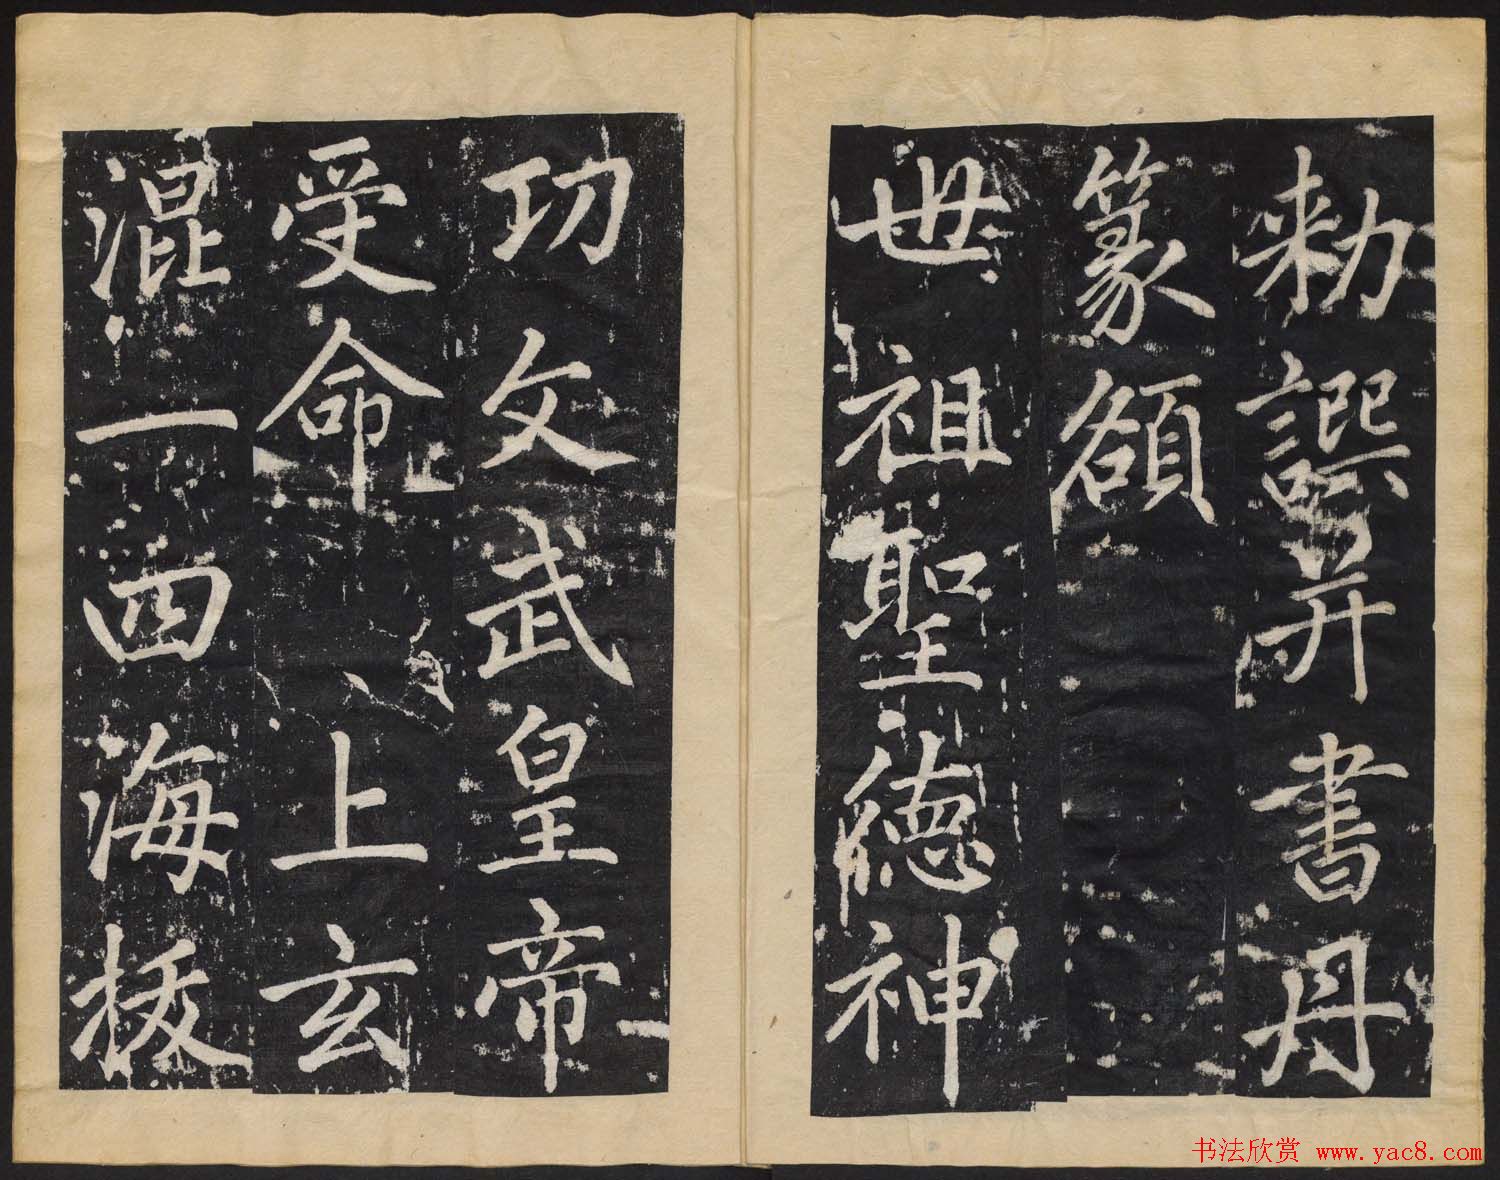 勑譔并書丹
篆額
世祖聖德神
功文武皇帝
受命上玄
混一四海拔
书法欣赏 www.yac8.com